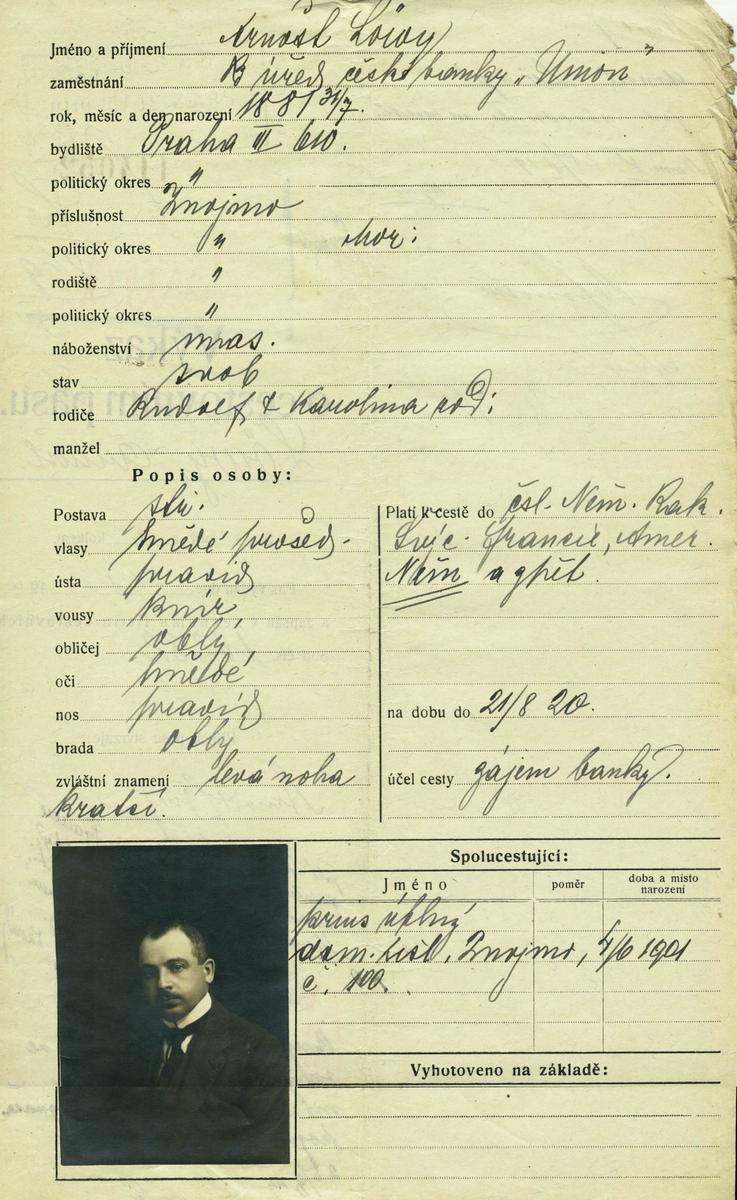 Jméno a příjmení Arnošt Löwy
zaměstnání úřed. české banky „Union“
rok, měsíc a den narození 1881 31/7.
bydliště Praha III 610.
politický okres "
příslušnost Znojmo
politický okres " Mor:
rodiště "
politický okres "
náboženství
stav svob
rodiče Rudolf & Karolina rod:
manžel
Popis osoby:
Postava stř.
vlasy hnědé prošed.
ústa pravid
vousy knír
obličej oblý
oči hnědé
nos pravid
brada oblý
zvláštní znamení levá noha
kratší.
Platí k cestě do čsl. Něm. Rak.
Švýc. Francie, Amer.
Něm a zpět.
na dobu do 21/8 20.
účel cesty zájem banky.
Spolucestující:
Jméno poměr doba a místo
narození
dom. list, Znojmo, 4/6 1901
č. 100.
Vyhotoveno na základě: